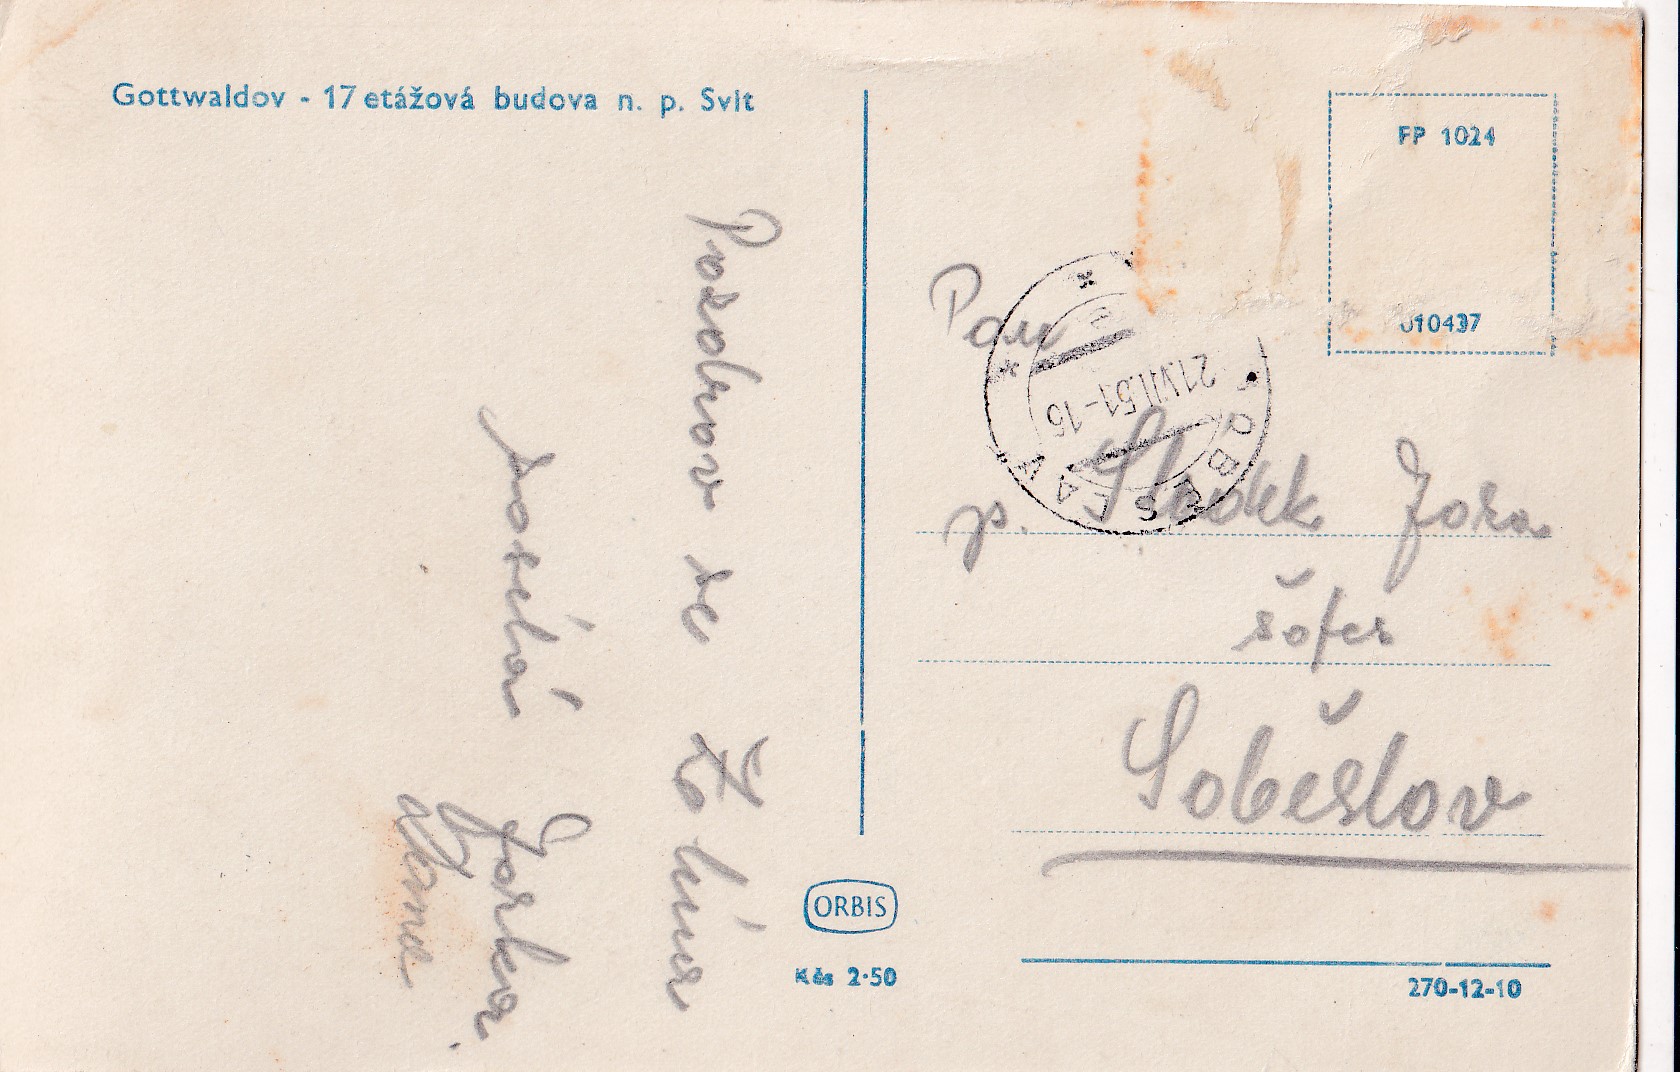 Gottwaldov - 17 etážová budova n. p. Svit
Pozdrav ze Zlína
posílá
Jarka
FP 1024
010437
Pan
p. Sladek Jora
šofer
Soběslav
21.VII.51-15
ORBIS
Kčs 2·50
270-12-10